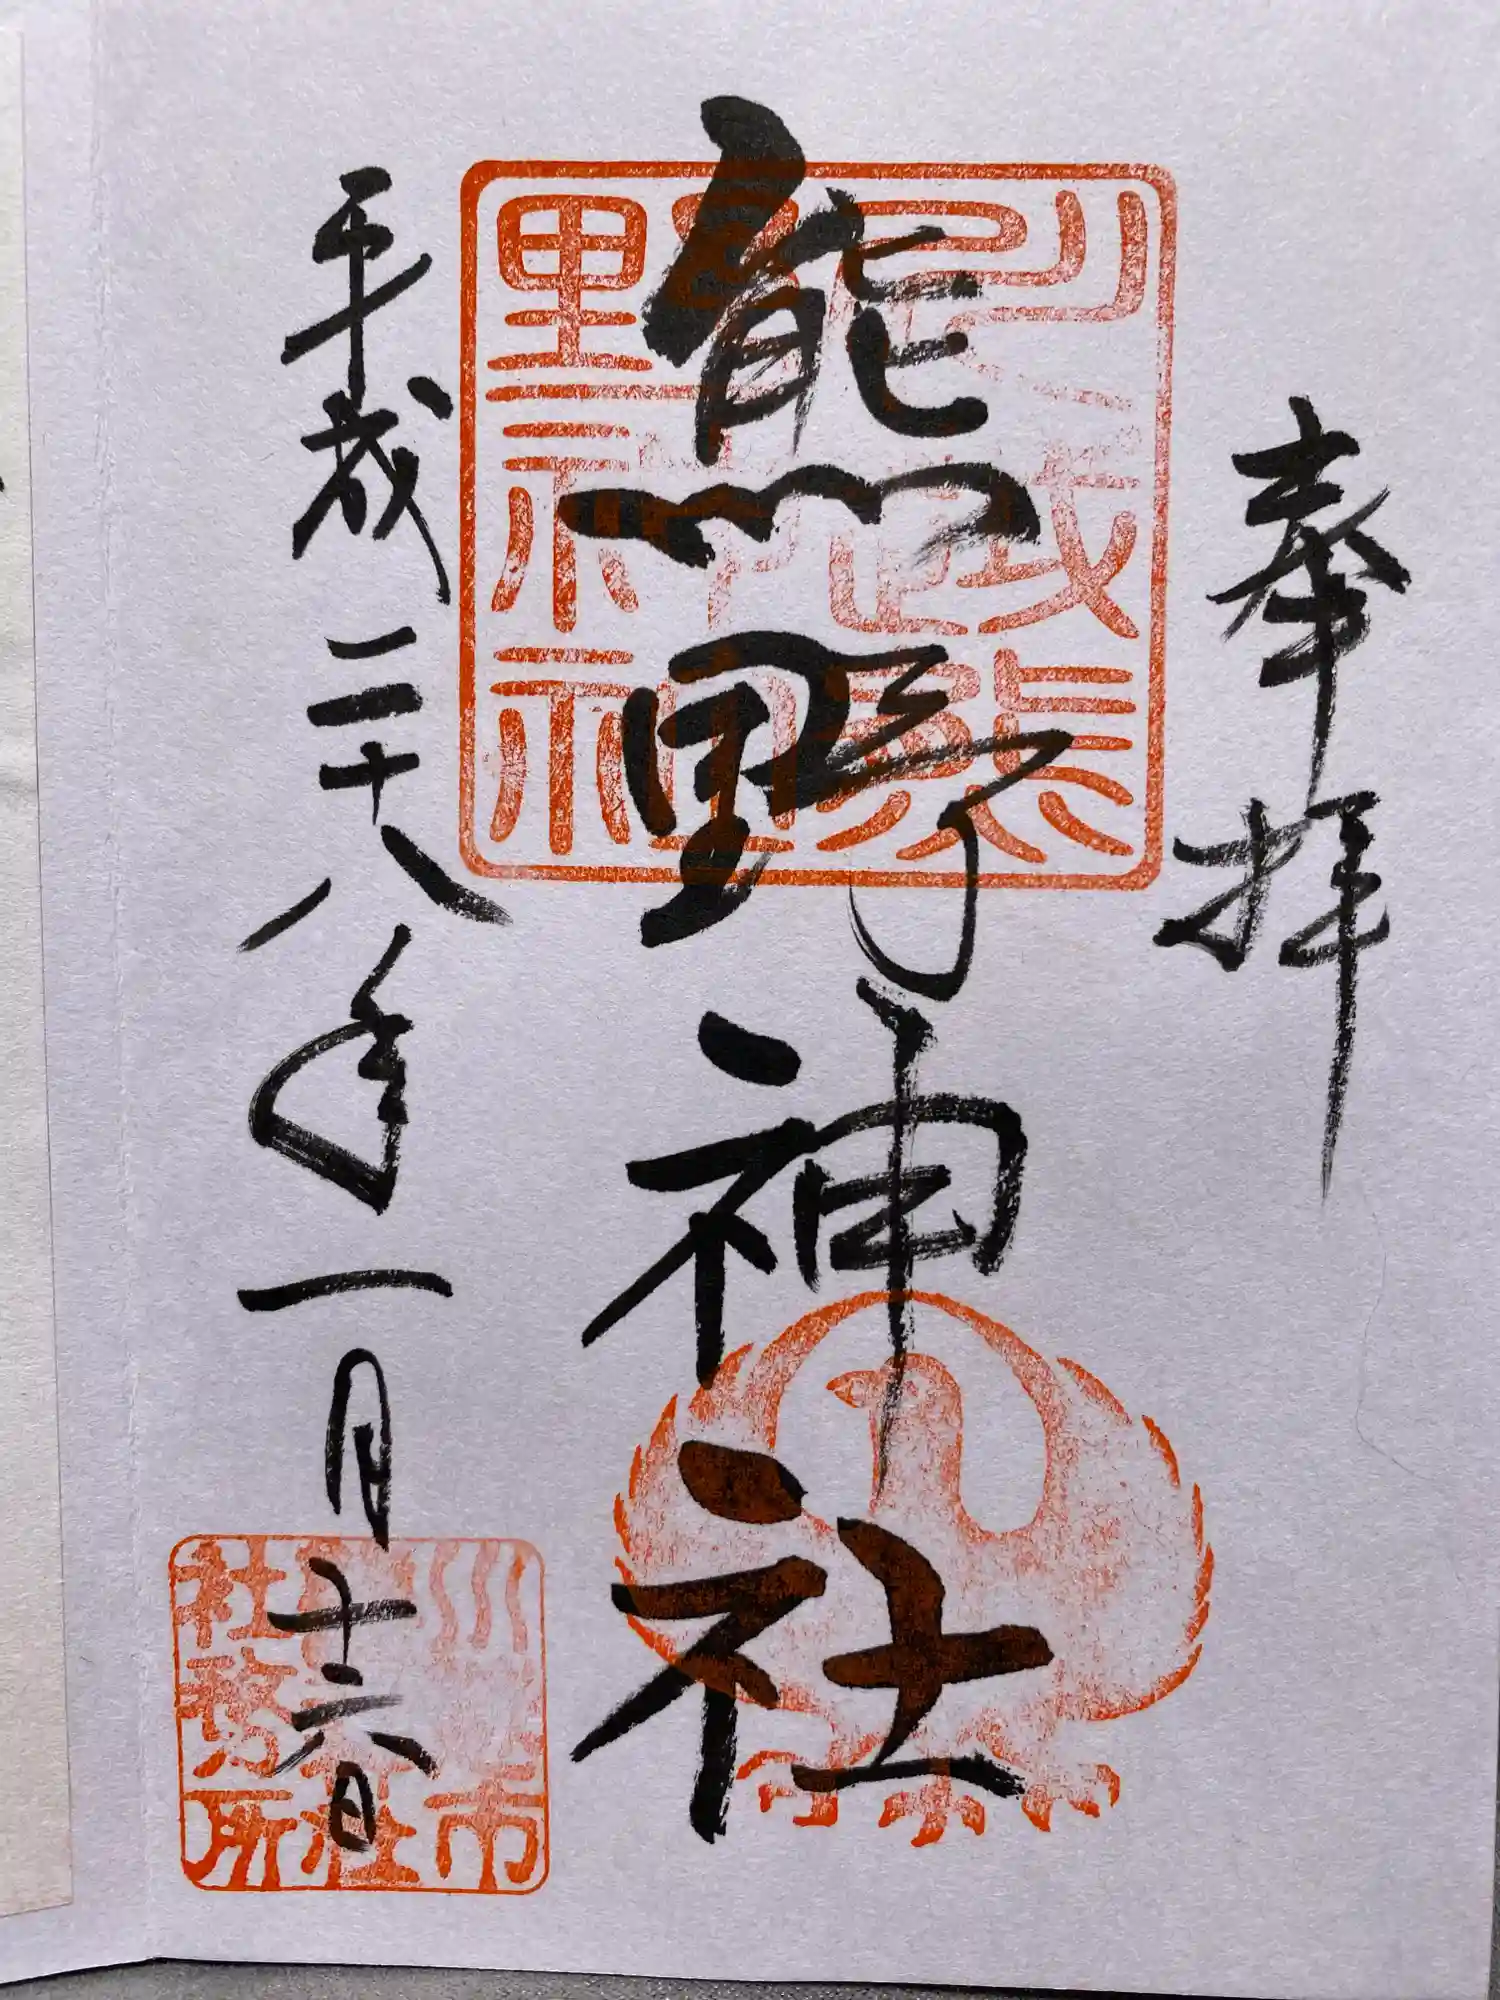 奉拝
熊野神社
平成二十八年一月十六日
川越熊
野神社
川越市
社務所